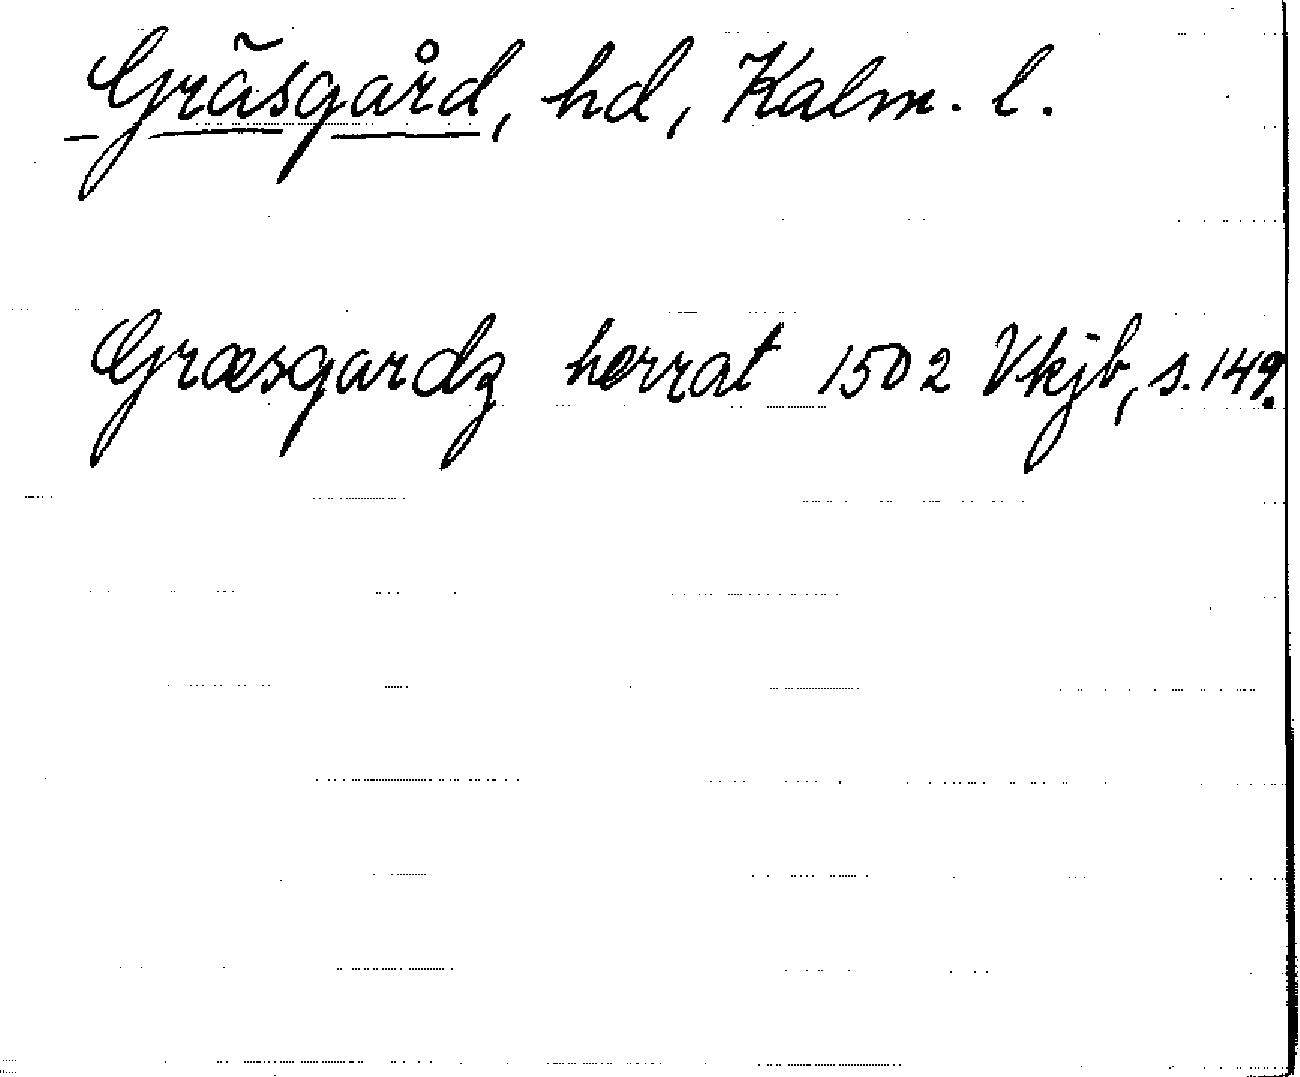 Gräsgård, hd, Kalm. l.
Græsgardz herrat 1502 Vkjb, s. 149.